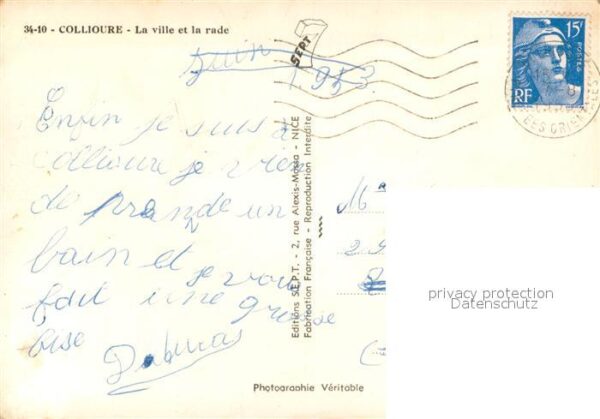 34-10 - COLLIOURE - La ville et la rade
SEPT
15F
POSTES
RF
EES ORIENTALES
Juin 1953
Enfin je suis à
Collioure je vien
de prandre un
bain et je vous
fait une grosse
bise
Editions S.E.P.T. - 2, rue Alexis-Mossa - NICE
Fabrication Française - Reproduction Interdite
M
29
privacy protection
Datenschutz
Photographie Véritable